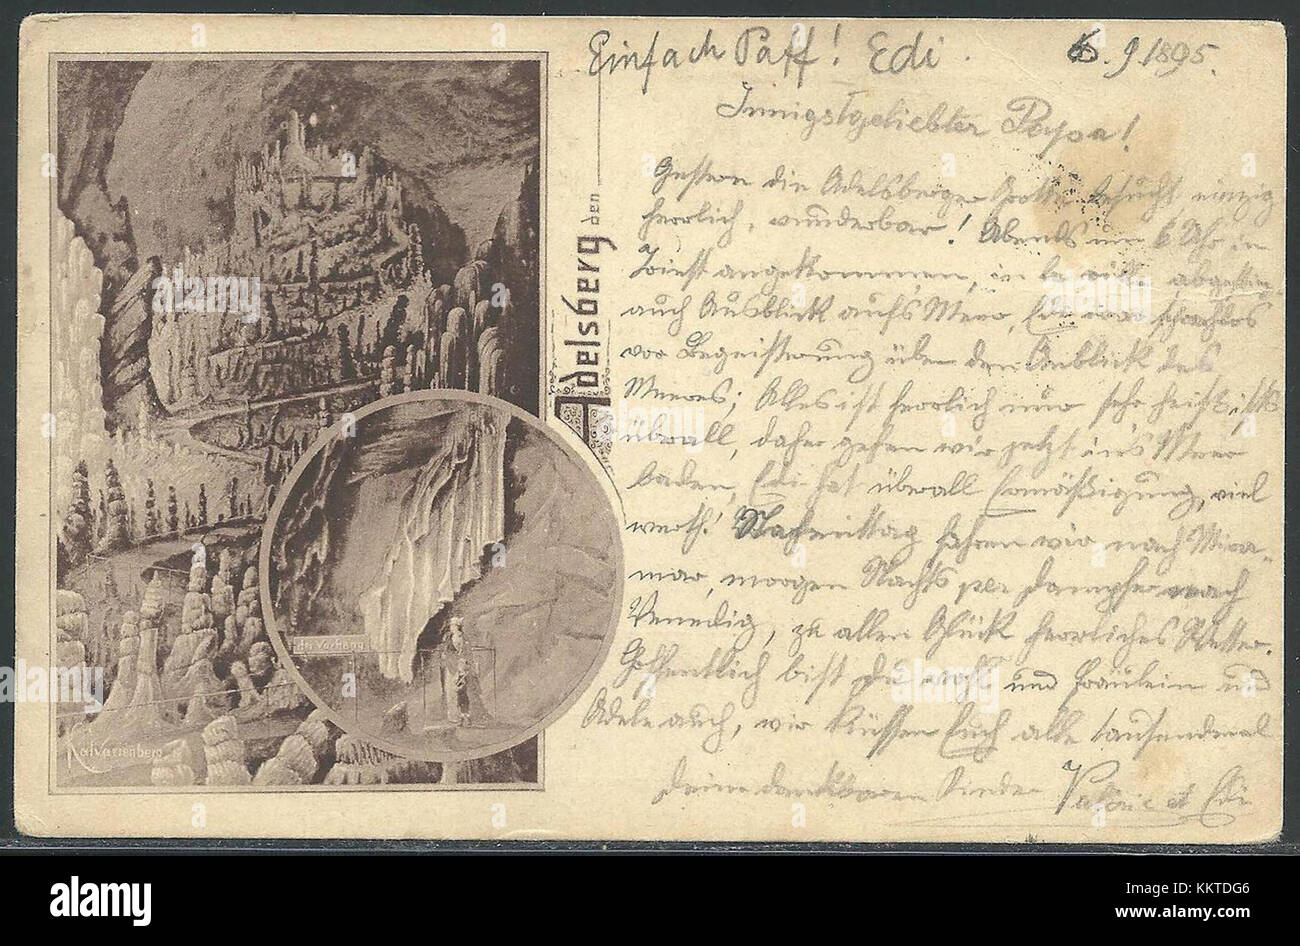 Einfach Paff! Edi. 6. 9 1895.
Innigstgeliebter Papa!
Gestern die Adelsberger Grotte besucht einzig
herrlich, wunderbar! Abends um 6 Uhr in
Triest angekommen, in la ville abgestiegen,
auch Ausblick aufs Meer, Edi war sprachlos
vor Begeisterung über den Anblick des
Meeres; Alles ist herrlich nur sehr heiß ists
überall, daher gehen wir jetzt ins Meer
baden, Edi hat überall Ermäßigung, viel
werth! Nachmittag fahren wir nach Mira-
mar, morgen Nachts per Dampfer nach
Venedig, zu allem Glück herrliches Wetter.
Hoffentlich bist du wohl und Fräulein und
Adele auch, wir küssen Euch alle tausendmal
Deine dankbaren Kinder Valerie et Edi
Adelsberg den
Vorhang
Kalvarienberg
alamy
Image ID: KKTDG6
www.alamy.com